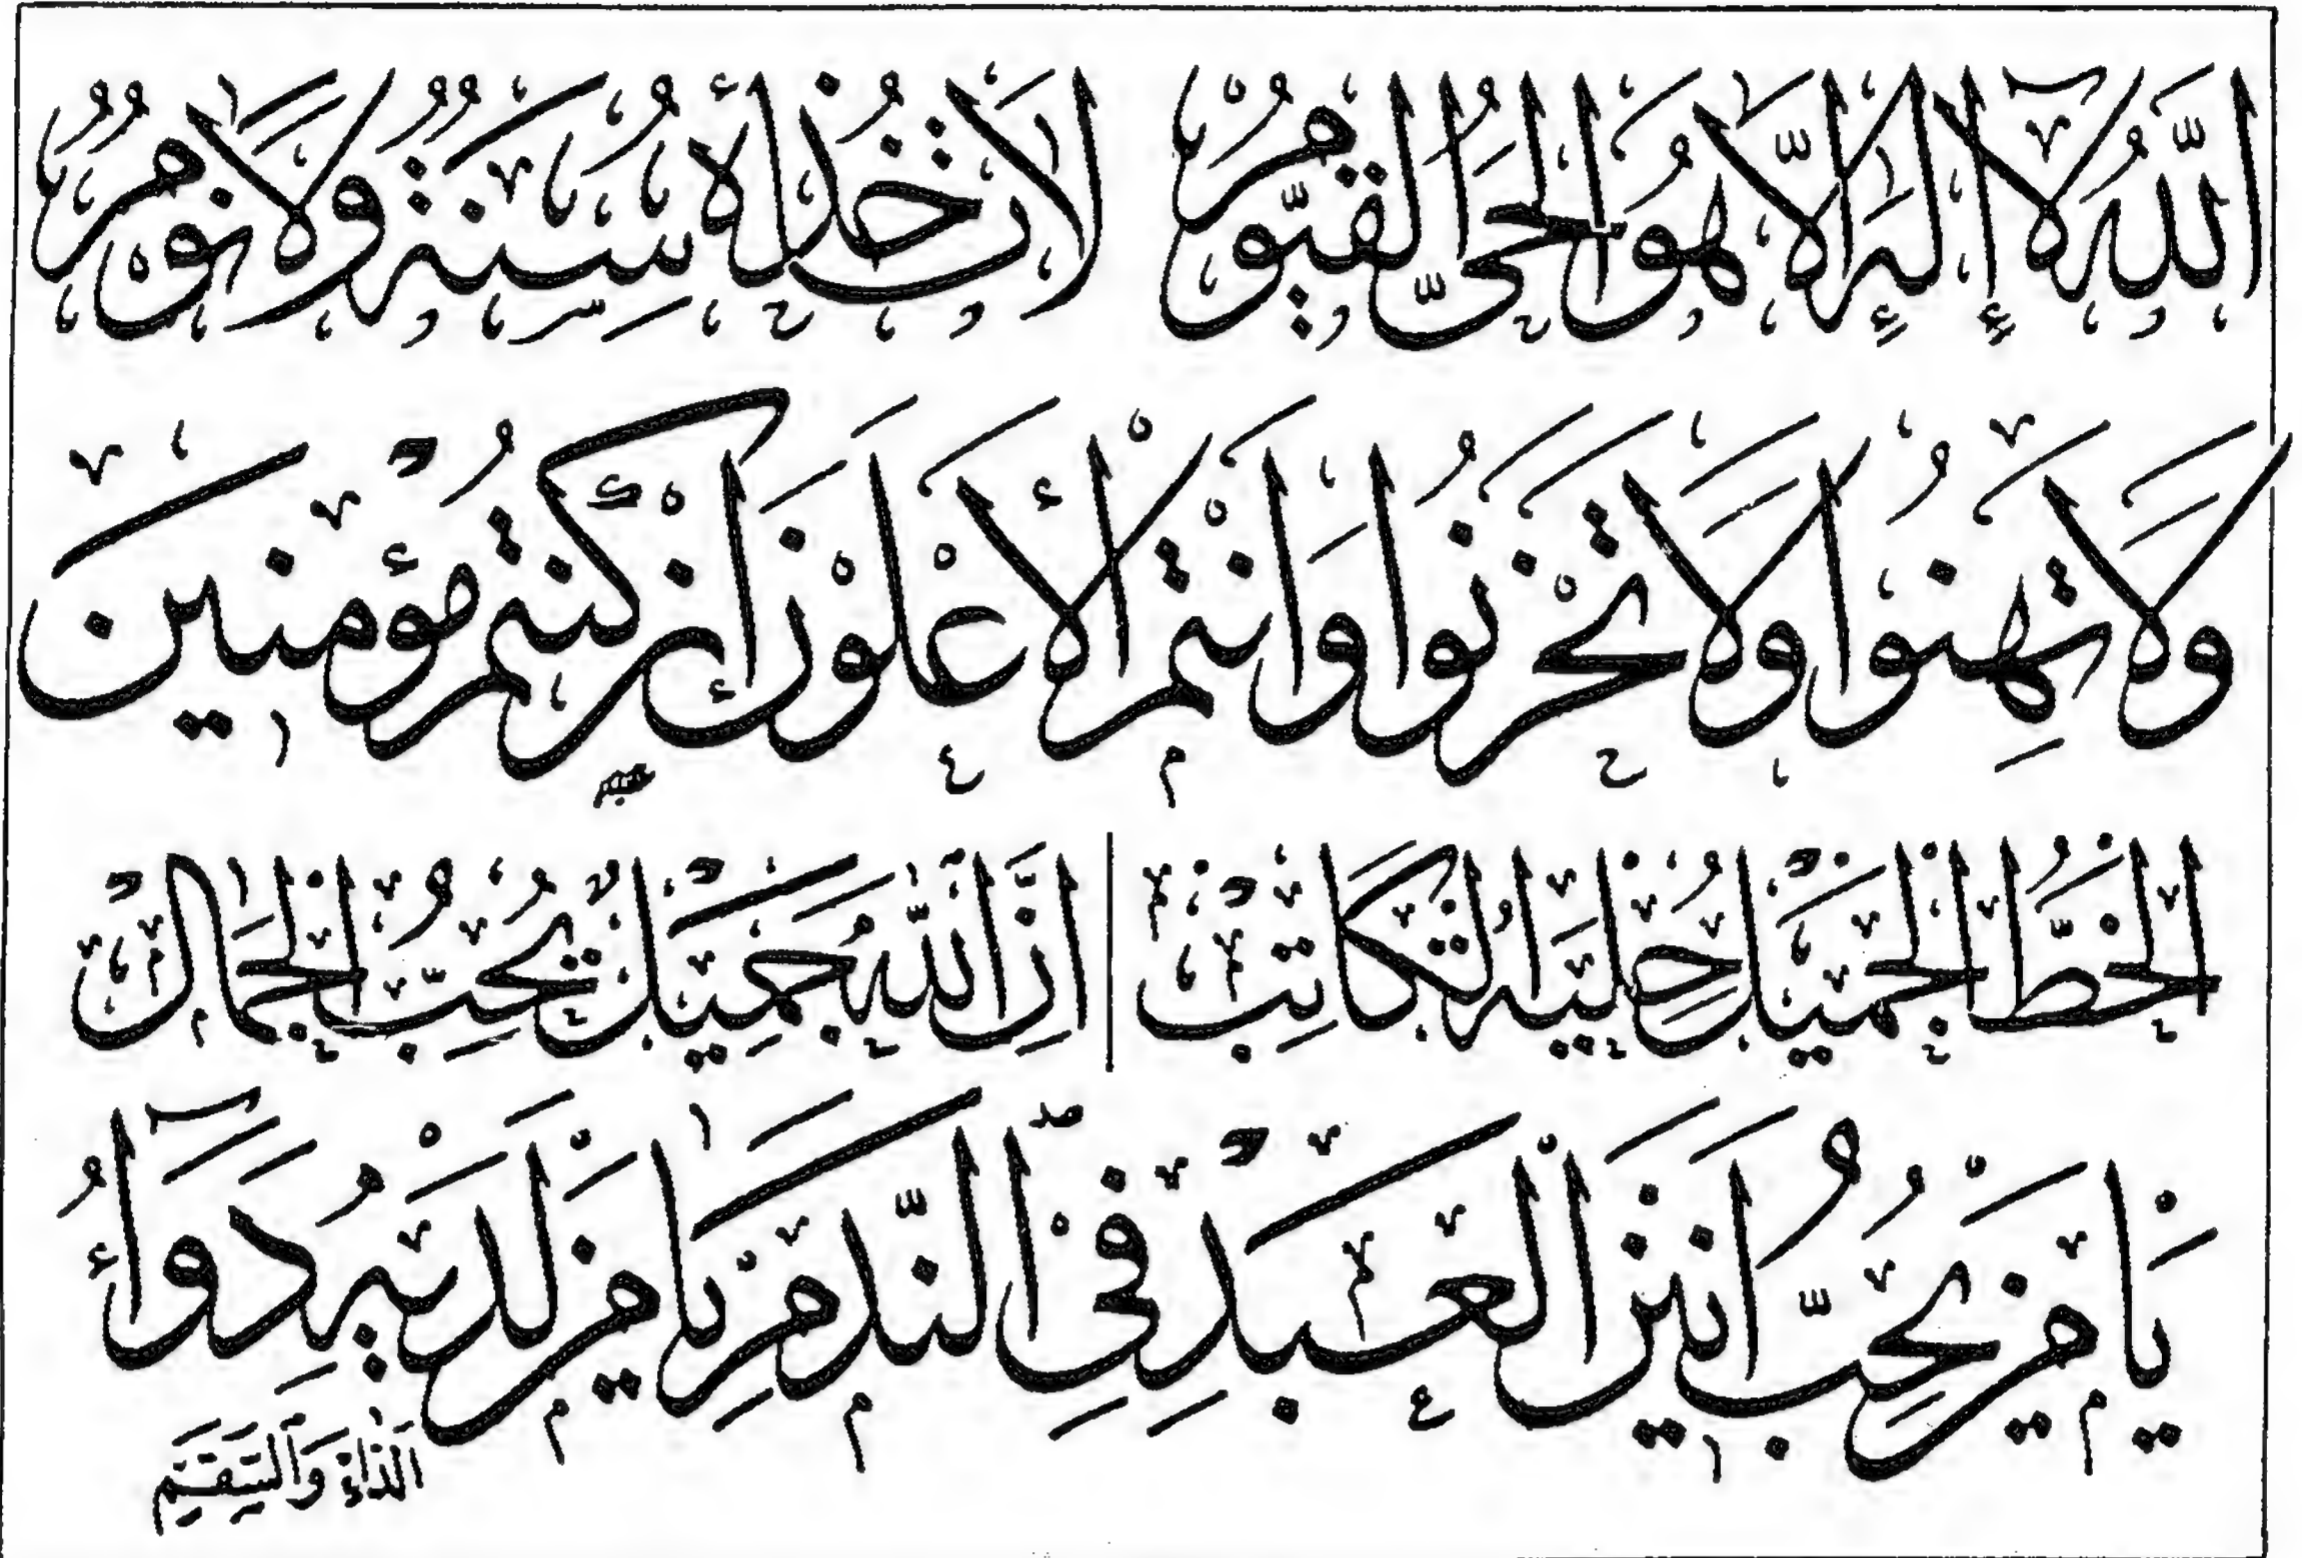 اللّٰهُ لَا إِلٰهَ إِلَّا هُوَ الْحَيُّ الْقَيُّومُ لَا تَأْخُذُهُ سِنَةٌ وَلَا نَوْمٌ
وَلَا تَهِنُوا وَلَا تَحْزَنُوا وَأَنْتُمُ الْأَعْلَوْنَ إِنْ كُنْتُمْ مُؤْمِنِينَ
الْخَطُّ الْجَمِيلُ حِلْيَةُ الْكَاتِبِ اِنَّ اللّٰهَ جَمِيلٌ يُحِبُّ الْجَمَالَ
يَا مَنْ يُحِبُّ اَنِينَ الْعَبْدِ فِي النَّدَمِ يَا مَنْ لَدَيْهِ دَوَاءُ
الدَّاءِ وَالسَّقَمِ